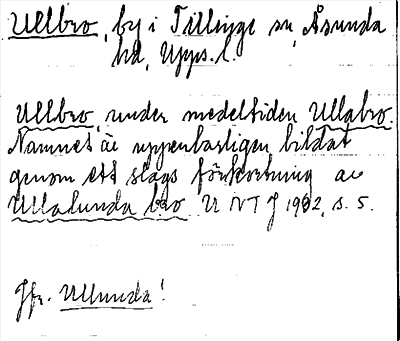 Ullbro, by i Tillinge sn, Åsunda
hd, Upps. l.
Ullbro, under medeltiden Ullabro.
Namnet är uppenbarligen bildat
genom ett slags förkortning av
Ullalunda bro. UNTJ 1902, s. 5.
Jfr. Ullunda!